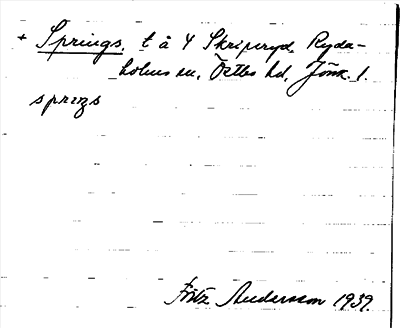 + Springs. t å 4 Skripsryd Ryda-
holms sn, Östbo hd, Jönk. l.
sprıŋs
Fritz Andersson 1939.